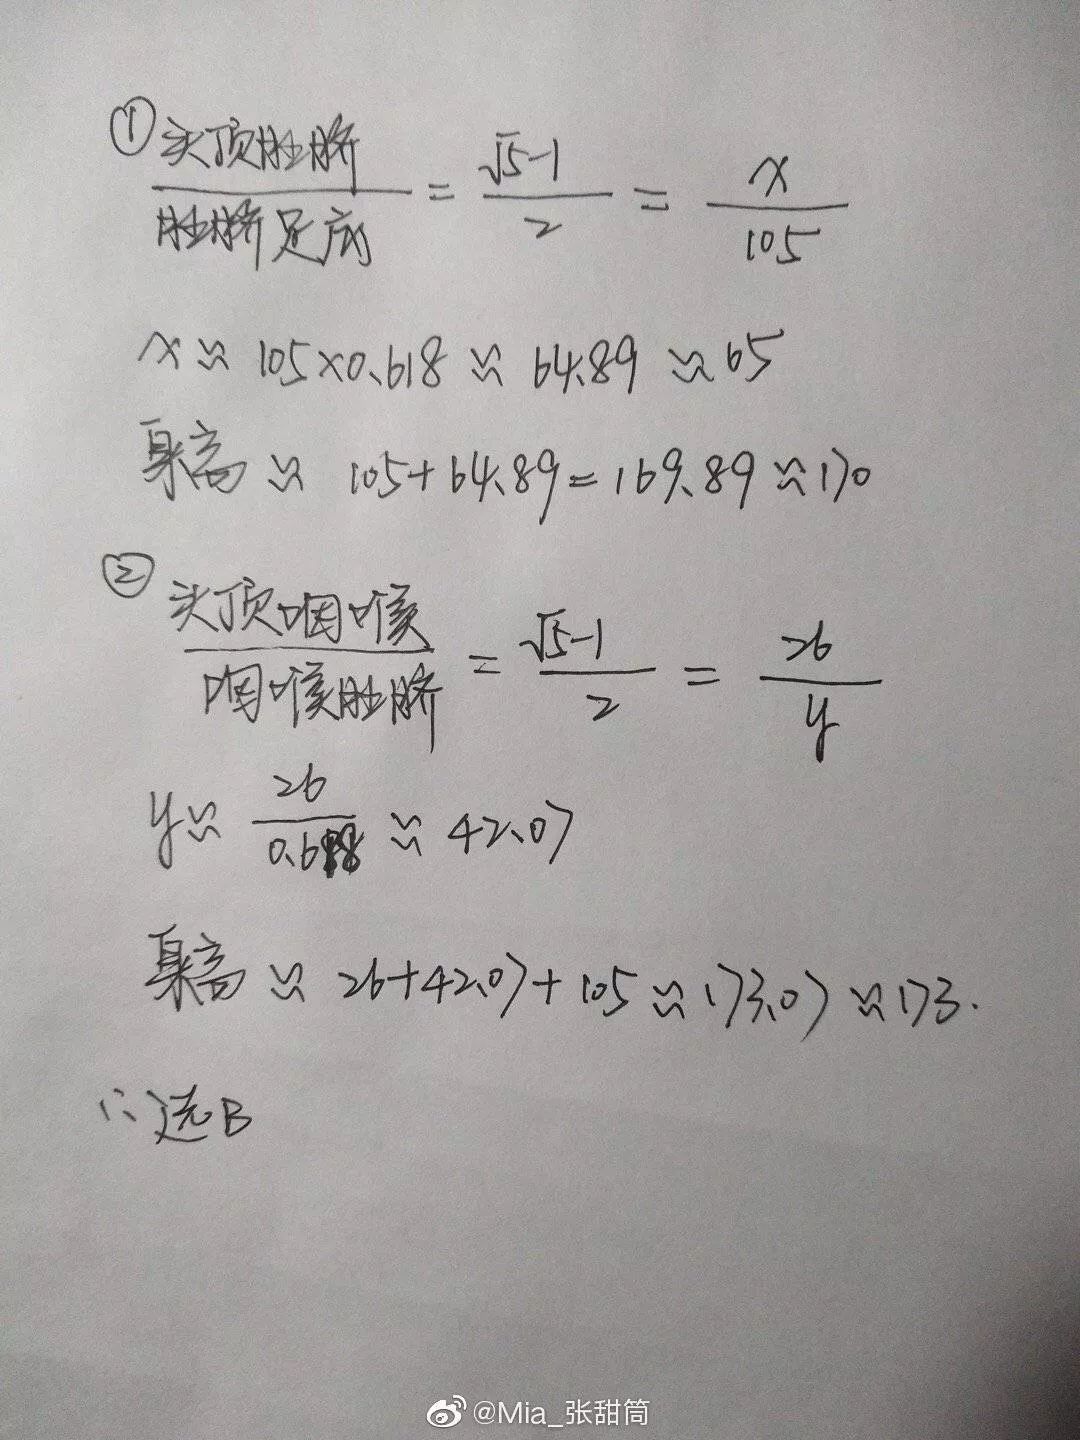 ① 头顶肚脐/肚脐足底 = (√5-1)/2 = x/105
x ≈ 105×0.618 ≈ 64.89 ≈ 65
身高 ≈ 105+64.89=169.89≈170
② 头顶咽喉/咽喉肚脐 = (√5-1)/2 = 26/y
y≈ 26/0.618 ≈ 42.07
身高 ≈ 26+42.07+105≈173.07≈173.
∴选B
@Mia_张甜筒